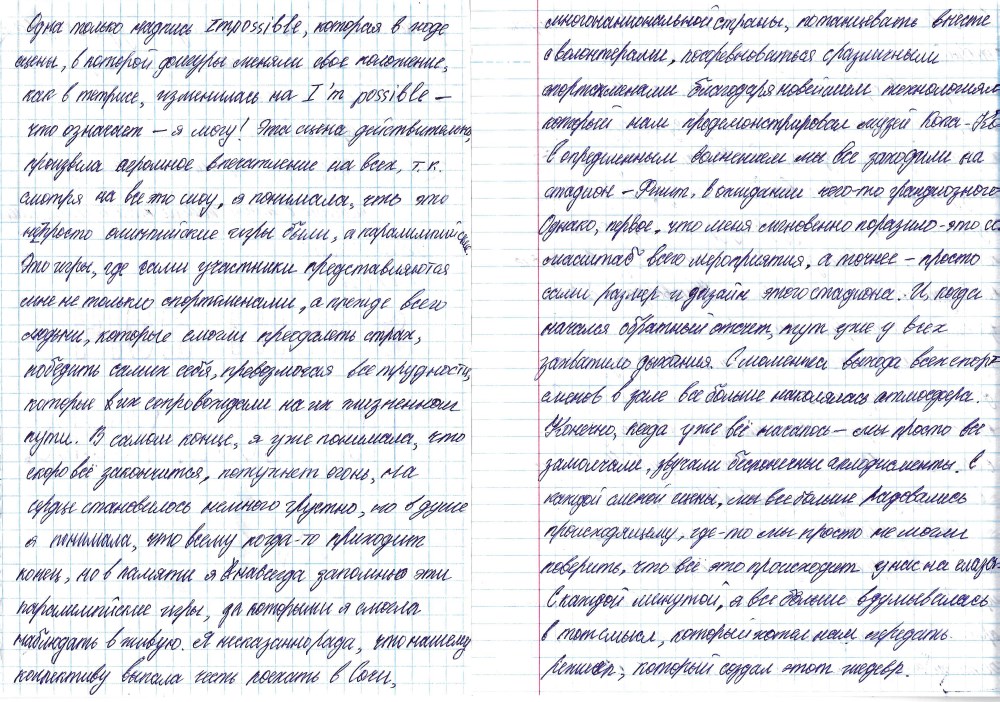 Одна только надпись Impossible, которая в ходе
сцены, в которой фигуры меняли свое положение,
как в тетрисе, изменилась на I'm possible –
что означает – я могу! Эта сцена действительно
произвела огромное впечатление на всех, т.к.
смотря на все это шоу, я понимала, что это
не просто олимпийские игры были, а паралимпийские.
Это игры, где сами участники представляются
мне не только спортсменами, а прежде всего
людьми, которые смогли преодолеть страх,
победить самих себя, превозмогая все трудности,
которые их сопровождали на их жизненном
пути. В самом конце, я уже понимала, что
скоро всё закончится, потухнет огонь, на
сердце становилось немного грустно, но в душе
я понимала, что всему когда-то приходит
конец, но в памяти я навсегда запомню эти
паралимпийские игры, за которыми я смогла
наблюдать в живую. Я несказанно рада, что нашему
коллективу выпала честь поехать в Сочи,
многонациональной страны, потанцевать вместе
с волонтерами, посоревноваться с различными
спортсменами благодаря новейшим технологиям,
который нам продемонстрировал музей Кока-Ко
С определенным волнением мы все заходили на
стадион – Фишт, в ожидании чего-то грандиозного.
Однако, первое, что меня мгновенно поразило – это
масштаб всего мероприятия, а точнее – просто
сами размер и дизайн этого стадиона. И, когда
начался обратный отсчет, тут уже у всех
захватило дыхания. С момента выхода всех спорт-
сменов в зале все больше накалялась атмосфера.
Конечно, когда уже всё началось – мы просто все
замолчали, звучали бесконечные аплодисменты. С
каждой сменой сцены, мы все больше радовались
происходящему, где-то мы просто не могли
поверить, что всё это происходит у нас на глазах.
С каждой минутой, я все больше вдумывалась
в тот смысл, который хотел нам передать
режиссер, который создал этот шедевр.